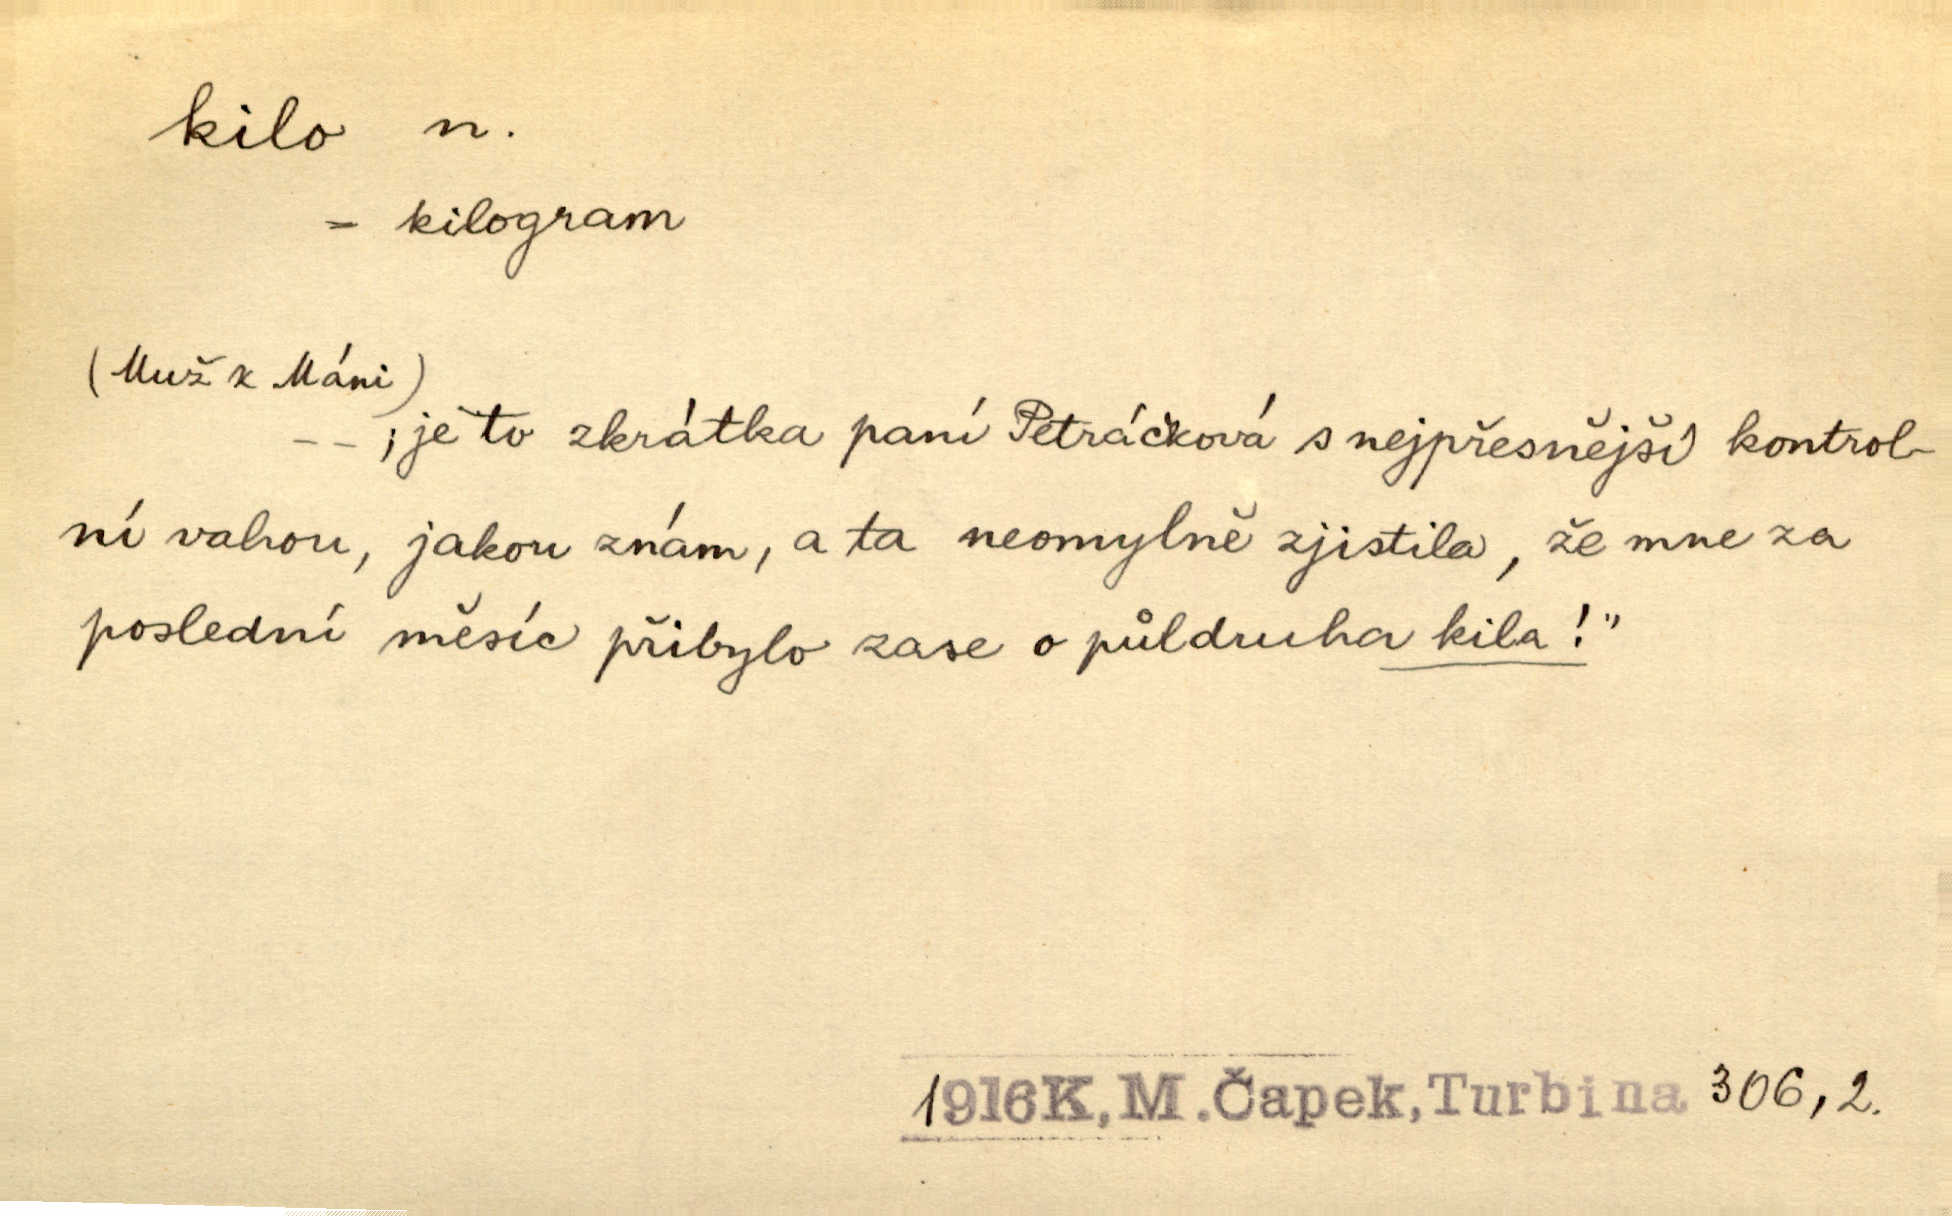 kilo n.
= kilogram
(Muž k Máni)
-- ; je to zkrátka paní Petráčková s nejpřesnější kontrol-
ní vahou, jakou znám, a ta neomylně zjistila, že mne za
poslední měsíc přibylo zase o půldruha kila!"
1916K,M.Čapek,Turbina 306,2.